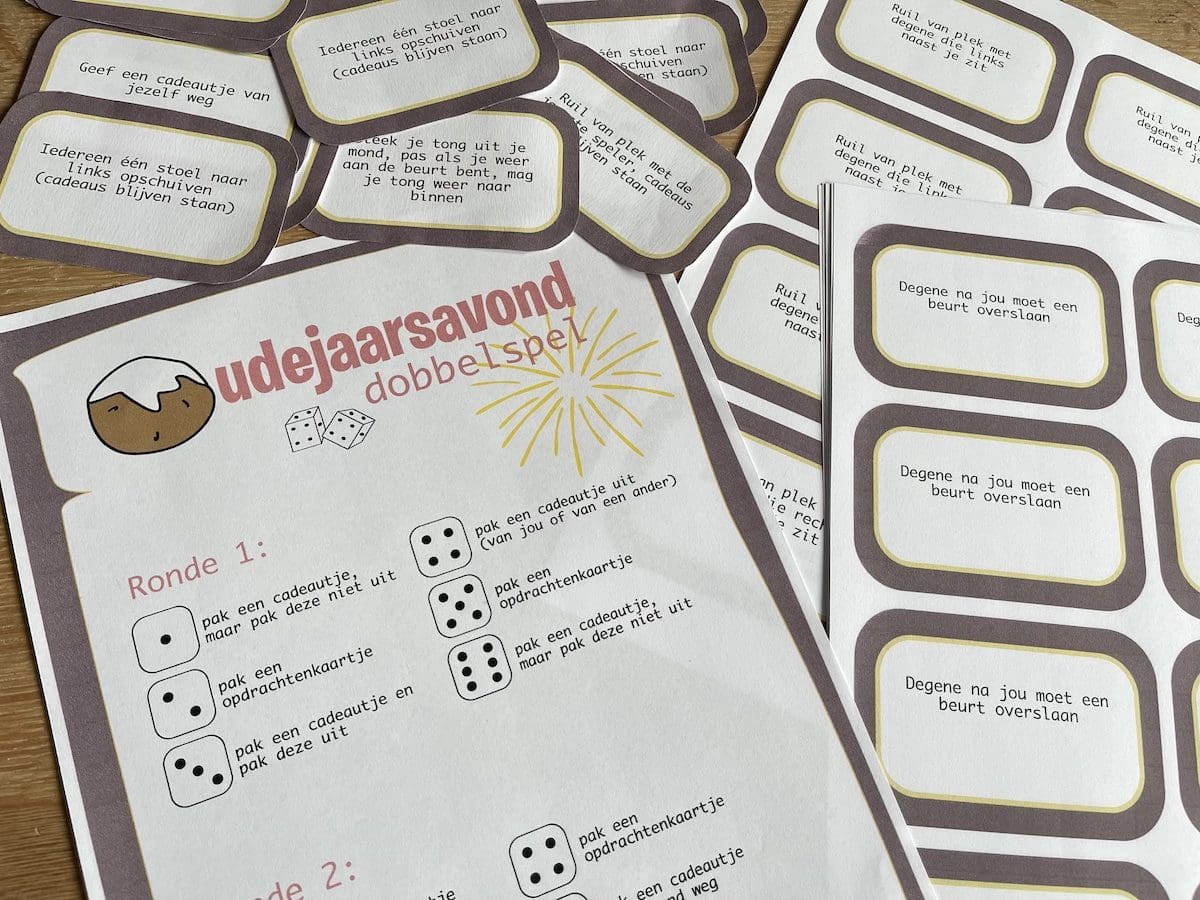 Iedereen één stoel naar
links opschuiven
(cadeaus blijven staan)
één stoel naar
schuiven
staan)
Geef een cadeautje van
jezelf weg
Iedereen één stoel naar
links opschuiven
(cadeaus blijven staan)
steek je tong uit je
mond, pas als je weer
aan de beurt bent, mag
je tong weer naar
binnen
Ruil van plek met de
speler, cadeaus
blijven staan
Ruil van plek met
degene die links
naast je zit
Ruil van
degene die
naast j
Ruil van plek met
degene die links
naast je
Ruil v
degene
naast
van plek
die rech
je zit
Degene na jou moet een
beurt overslaan
Deg
Degene na jou moet een
beurt overslaan
Degene na jou moet een
beurt overslaan
oudejaarsavond
dobbelspel
Ronde 1:
pak een cadeautje,
maar pak deze niet uit
pak een
opdrachtenkaartje
pak een cadeautje en
pak deze uit
pak een cadeautje uit
(van jou of van een ander)
pak een
opdrachtenkaartje
pak een cadeautje,
maar pak deze niet uit
nde 2:
pak een
opdrachtenkaartje
k een cadeautje
nd weg